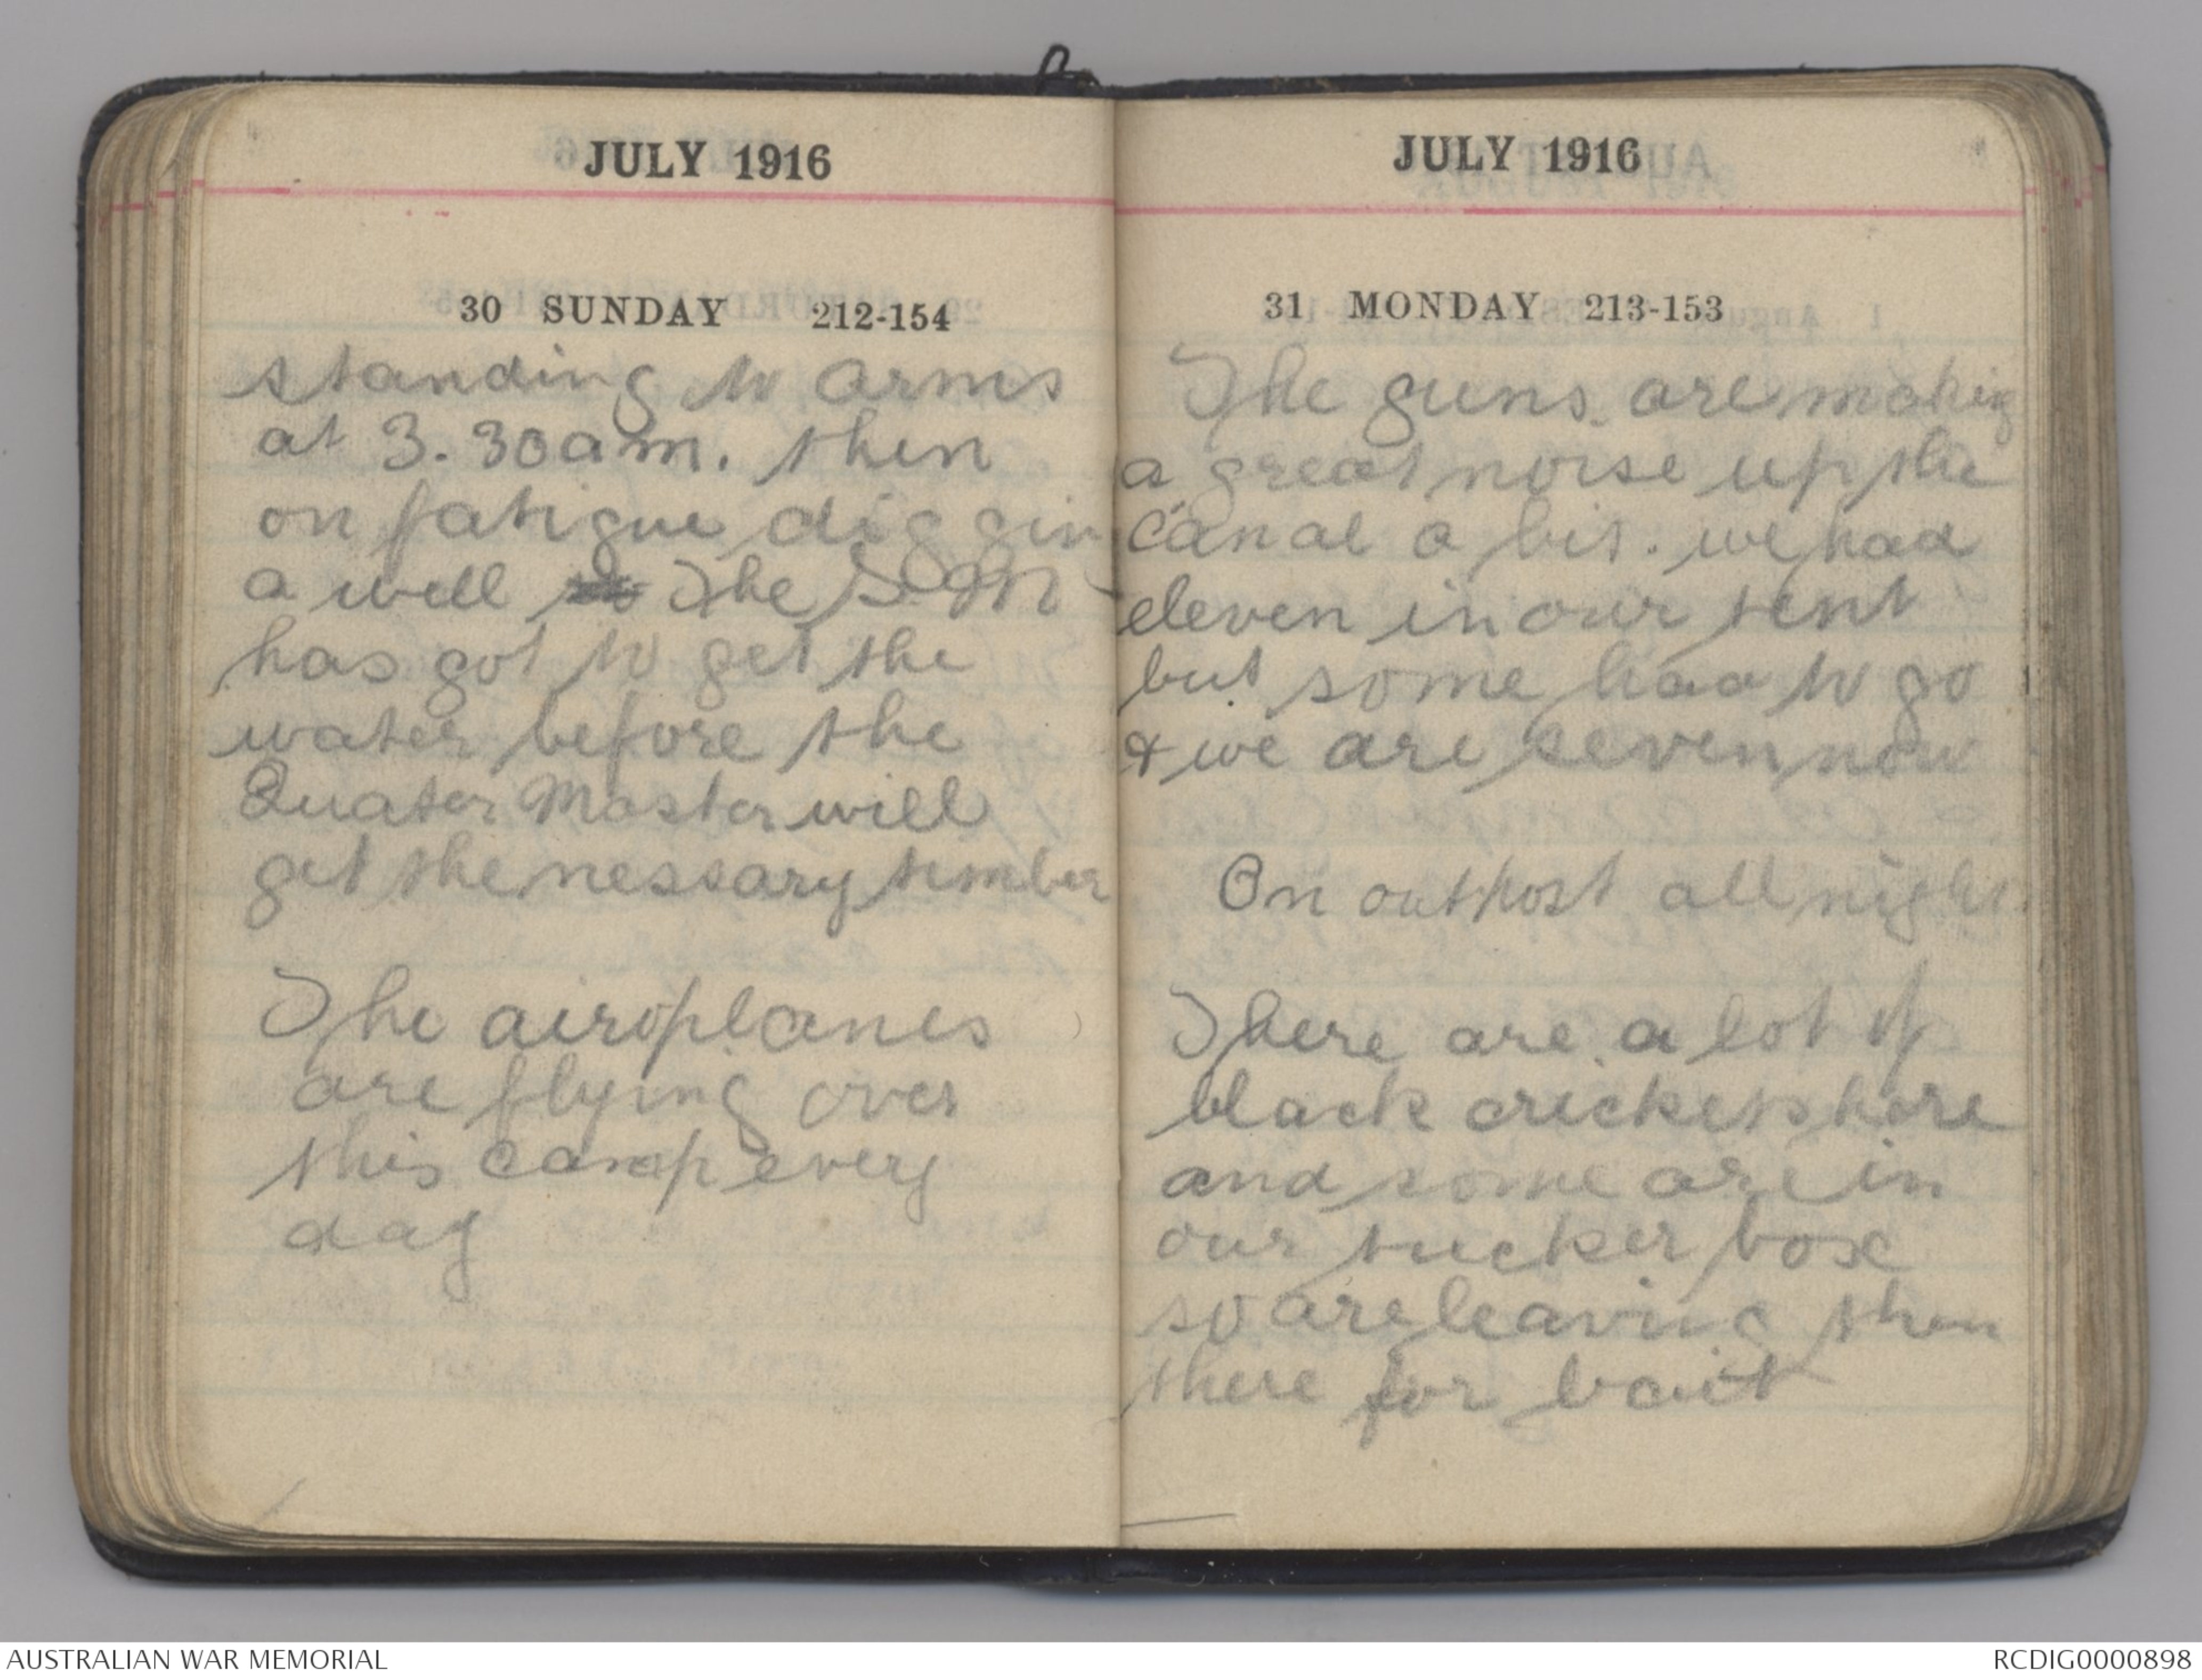 JULY 1916
30 SUNDAY 212-154
standing to arms
at 3.30am. then
on fatigue diggin
a well The S.M
has got to get the
water before the
Quater Master will
get the nessary timber
The airoplanes
are flying over
this camp every
day
JULY 1916
31 MONDAY 213-153
The guns are making
a great noise up the
canal a bit. we had
eleven in our tent
but some had to go
& we are seven now
On outpost all night.
There are a lot of
black crickets here
and some are in
our tucker box
so are leaving them
there for bait
AUSTRALIAN WAR MEMORIAL
RCDIG0000898